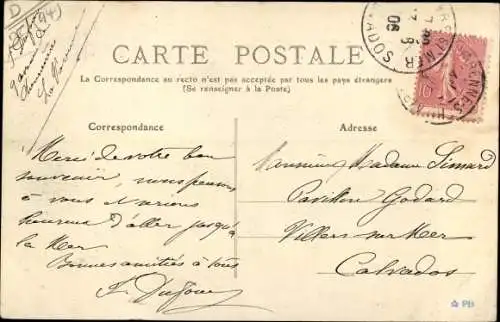 CARTE POSTALE
La Correspondance au recto n'est pas acceptée par tous les pays étrangers
(Se renseigner à la Poste)
Correspondance
Adresse
Merci de votre bon
souvenir, nous pensons
à vous et serions
heureux d'aller jusqu'à
la Mer
Bonnes amitiés à tous
Dufour
Monsieur Madame Simard
Pavillon Godard
Villers sur Mer
Calvados
10